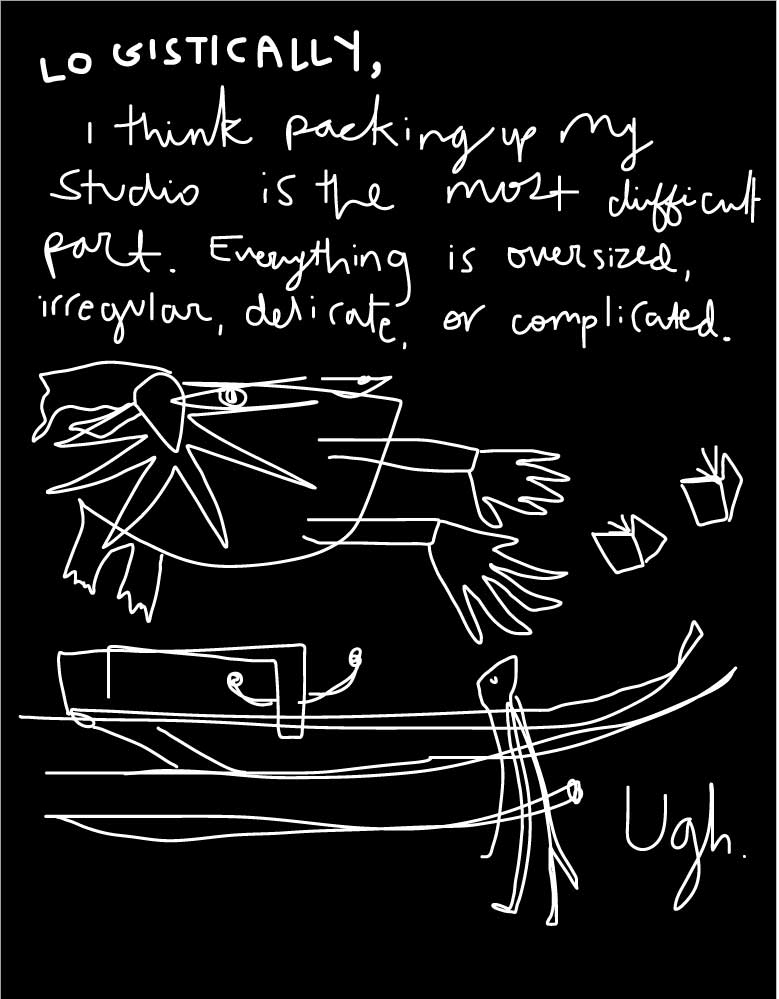 LOGISTICALLY,
I think packing up my
studio is the most difficult
part. Everything is oversized,
irregular, delicate, or complicated.
Ugh.